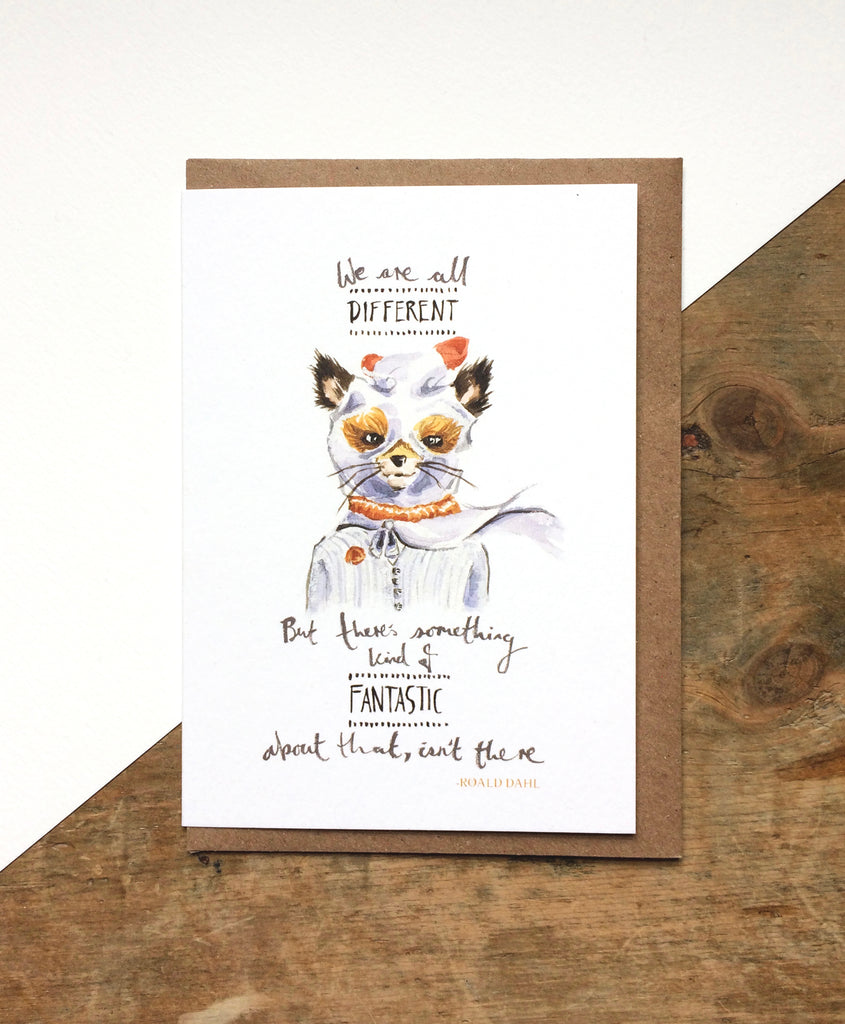 We are all
DIFFERENT
But there's something
kind of
FANTASTIC
about that, isn't there
-ROALD DAHL